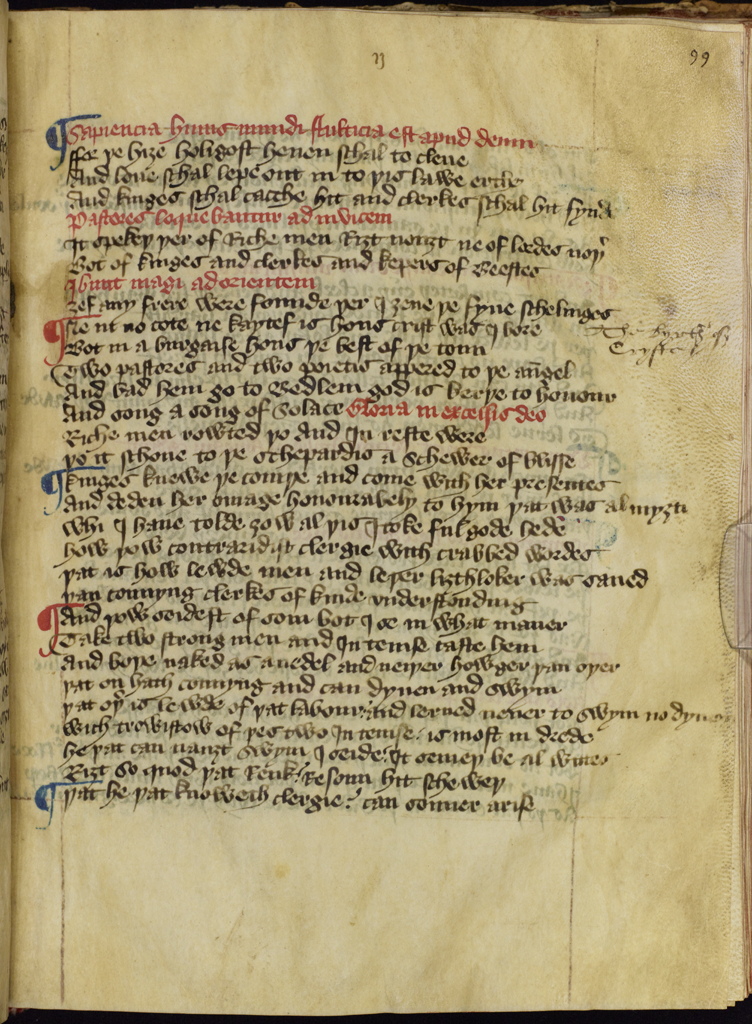 99
Sapiencia huius mundi stulticia est apud deum
ffor þe hize holigost heuen schal to cleue
And loue schal lepe out in to þis lawe erthe
And kinges schal cacche hit and clerkes schal hit fynde
Pastores loquebantur ad inuicem
It spekeþ þer of Riche men Rizt nouzt ne of lordes noþ
Bot of kinges and clerkes and kepers of Beestes
Ibunt magi ad orientem
zef any frere were founde þer I zeue þe fyue schelinges
Ne in no cote ne kaytef is hous crist was I bore
Bot in a burgaise hous þe best of þe toun
Two pastores and two poietis appered to þe angel
And bad hem go to Bedlem god is berþe to honour
And song a song of Solace Gloria in excelsis deo
Riche men rowted þo And In reste were
þo it schone to þe schepardis a Schewer of blisse
kinges knewe þe comyþe and come with her presentes
And deden her omage honourabely to hym þat was almyzti
Whi I haue tolde zow al þis I toke ful gode hede
how þow contraridist clergie with crabbed wordes
þat is how lewde men and leþer lizthloker was saued
þan connyng clerkes of kinde vnderstonding
And þow seidest of som bot I se in what maner
Take two strong men and In temse caste hem
And boþe naked as a nedel and neiþer howger þan oþer
þat on hath connyng and can dyuen and swym
þat oþ is lewde of þat labour and lerned neuer to swym no dyue
Wich trowistow of þes two In temse is most in drede
he þat can nauzt swym I seide It semeþ be al wittes
Rizt so quod þat Renk Resoun hit scheweþ
þat he þat knoweth clergie can sonner arise
The byrth of
Cryst